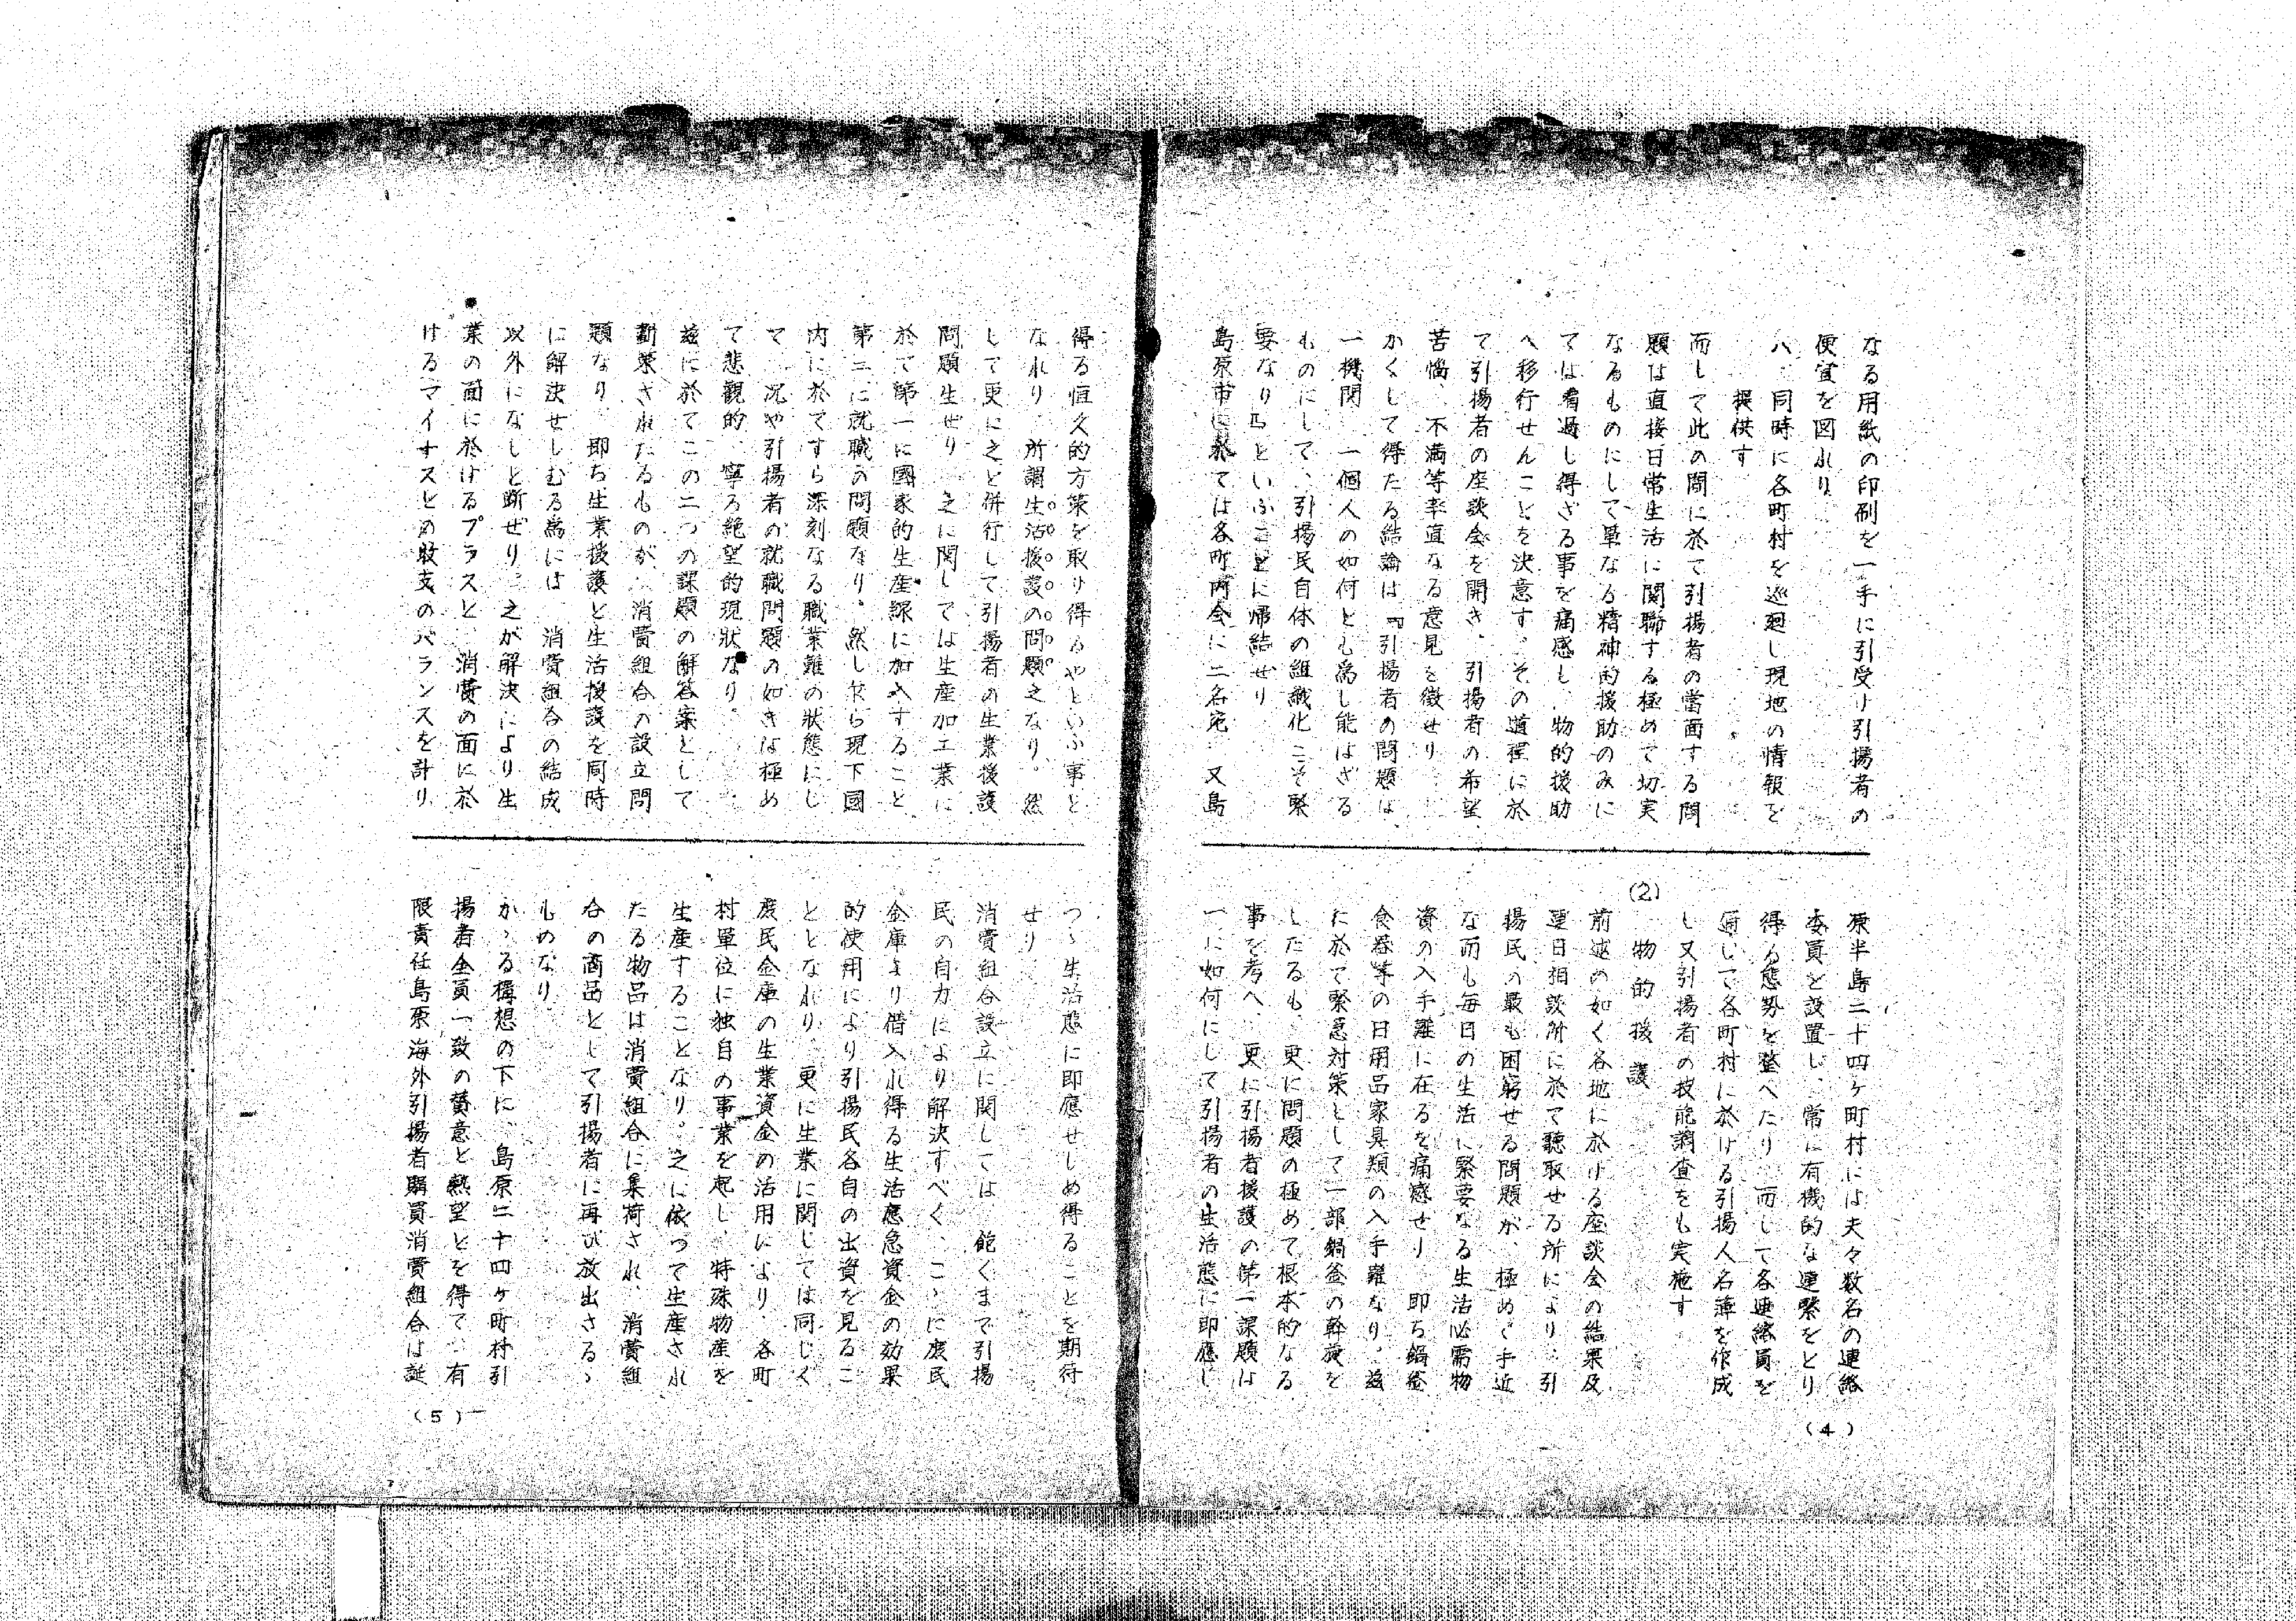 なる用紙の印刷を一手に引受け引揚者の
便宜を図れり
八、同時に各町村を巡廻し現地の情報を
提供す
而して此の間に於て引揚者の当面する問
題は直接日常生活に関聯する極めて切実
なるものにして単なる精神的援助のみに
ては看過し得ざる事を痛感し、物的援助
へ移行せんことを決意す。その道程に於
て引揚者の座談会を開き、引揚者の希望
苦悩、不満等率直なる意見を徴せり
かくして得たる結論は『引揚者の問題は
一機関 一個人の如何とも為し能はざる
ものにして、引揚民自体の組織化こそ緊
要なり』といふことに帰結せり
島原市に於ては各町内会に二名宛、又島
原半島二十四ヶ町村には夫々数名の連絡
委員を設置し、常に有機的な連繋をとり
得る態勢を整へたり、而して各連絡員を
通じて各町村に於ける引揚人名簿を作成
し又引揚者の技能調査をも実施す
(2)
物的援護
前述の如く各地に於ける座談会の結果及
連日相談所に於て聴取せる所により、引
揚民の最も困窮せる問題が、極めて手近
な而も毎日の生活に緊要なる生活必需物
資の入手難に在るを痛感せり 即ち鍋釜
食器等の日用品家具類の入手難なり。茲
に於て緊急対策として一部鍋釜の斡旋を
したるも、更に問題の極めて根本的なる
事を考へ、更に引揚者援護の第一課題は
一に如何にして引揚者の生活態に即應し
(4)
得る恒久的方策を取り得るやといふ事と
なれり 所謂生活援護の問題之なり、然
して更に之と併行して引揚者の生業援護
問題生せり 之に関しては生産加工業に
於て第一に國家的生産線に加入すること
第二に就職の問題なり。然し乍ら現下國
内に於てすら深刻なる職業難の状態にし
て、況や引揚者の就職問題の如きは極め
て悲観的、寧ろ絶望的現状なり。
茲に於てこの二つの課題の解答案として
勘案されたるものが、消費組合の設立問
題なり、即ち生業援護と生活援護を同時
に解決せしむる為には、消費組合の結成
以外になしと断ぜり。之が解決により生
業の面に於けるプラスと、消費の面に於
けるマイナスとの收支のバランスを計り
つゝ生活態に即應せしめ得ることを期待
せり
消費組合設立に関しては、飽くまで引揚
民の自力により解決すべく、こゝに庶民
金庫より借入れ得る生活應急資金の効果
的使用により引揚民各自の出資を見るこ
ととなれり、更に生業に関しては同じく
庶民金庫の生業資金の活用により、各町
村單位に独自の事業を起し、特殊物産を
生産することなり。之に依って生産され
たる物品は消費組合に集荷され、消費組
合の商品として引揚者に再び放出さるゝ
ものなり
かゝる構想の下に、島原二十四ヶ町村引
揚者全員一致の賛意と熱望とを得て、有
限責任島原海外引揚者購買消費組合は誕
(5)